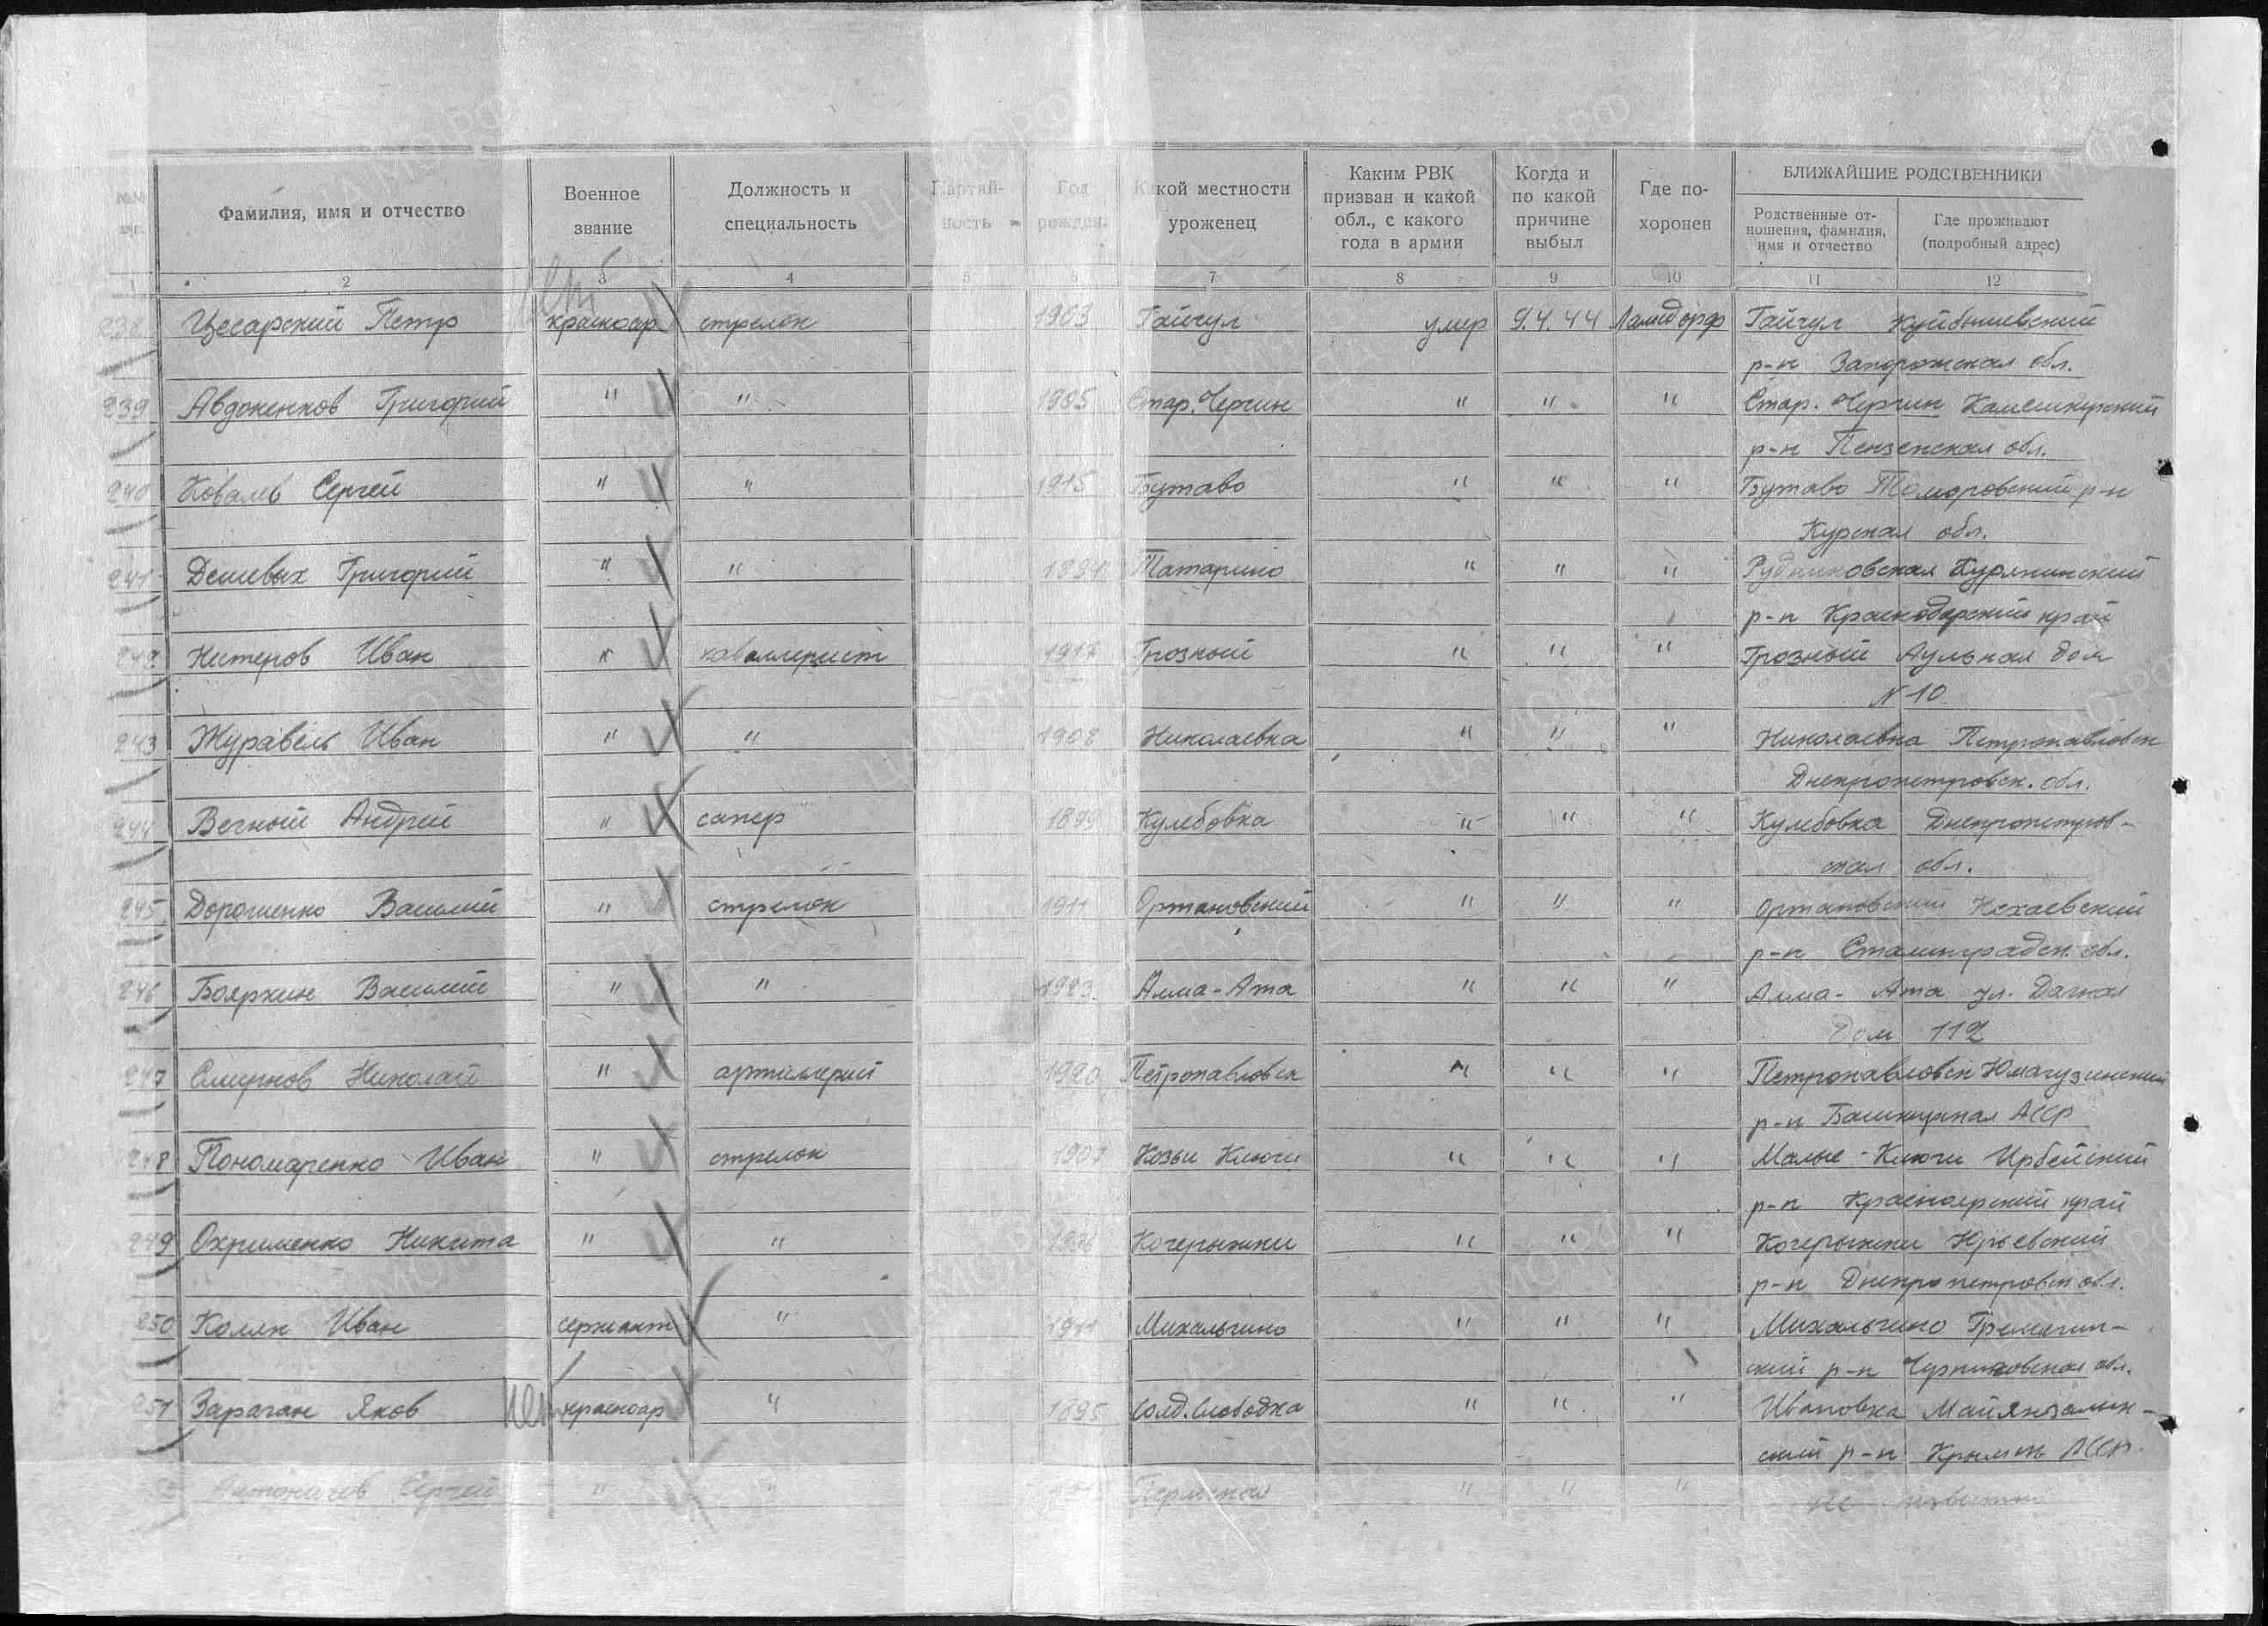 Фамилия, имя и отчество
Военное звание
Должность и специальность
Партий-ность
Год рожден.
Какой местности уроженец
Каким РВК призван и какой обл., с какого года в армии
Когда и по какой причине выбыл
Где по-хоронен
БЛИЖАЙШИЕ РОДСТВЕННИКИ
Родственные от-ношения, фамилия, имя и отчество
Где проживают (подробный адрес)
1 2 3 4 5 6 7 8 9 10 11 12
238 Цесарский Петр красноар стрелок 1903 Гайчул умер 9.4.44 Ламсдорф Гайчул Куйбышевский
р-н Запорожская обл.
239 Авдокенков Григорий " " 1905 Стар. Черчин " " " Стар. Черчин Камешкирский
р-н Пензенская обл.
240 Ковалев Сергей " " 1915 Бутаво " " " Бутаво Томаровский р-н
Курская обл.
241 Дешевых Григорий " " Татарино " " "
р-н Краснодарский край
242 Нитеров Иван " каваллерист Грозный " " " Грозный Аульная дом
N 10
243 Журавель Иван " " 1908 Николаевка " " " Николаевка Петропавловск
Днепропетровск. обл.
244 Вечный Андрей " сапер 1899 Кулебовка " " " Кулебовка Днепропетров-
ская обл.
245 Дорошенко Василий " стрелок 1911 Ортановский " " " Ортановский Нехаевский
р-н Сталинградск. обл.
246 Бояркин Василий " " 1923 Алма-Ата " " " Алма-Ата ул. Дачная
дом 112
247 Смирнов Николай " артиллерий 1920 Петропавловск " " " Петропавловск Юмагузинский
р-н Башкирская АССР
248 Пономаренко Иван " стрелок Козьи Ключи " " " Малые-Ключи Ирбейский
р-н Красноярский край
249 Охрименко Никита " " Кочерыжки " " " Кочерыжки Юрьевский
р-н Днепропетровск обл.
250 Колян Иван сержант " 1911 Михальчино " " " Михальчино Гремячин-
ский р-н обл.
251 Зарачан Яков красноар " 1895 Солд. Слободка " " " Ивановка
ский р-н Крымск АССР.
Сергей " " " " " не известно
ЦАМО.РФ